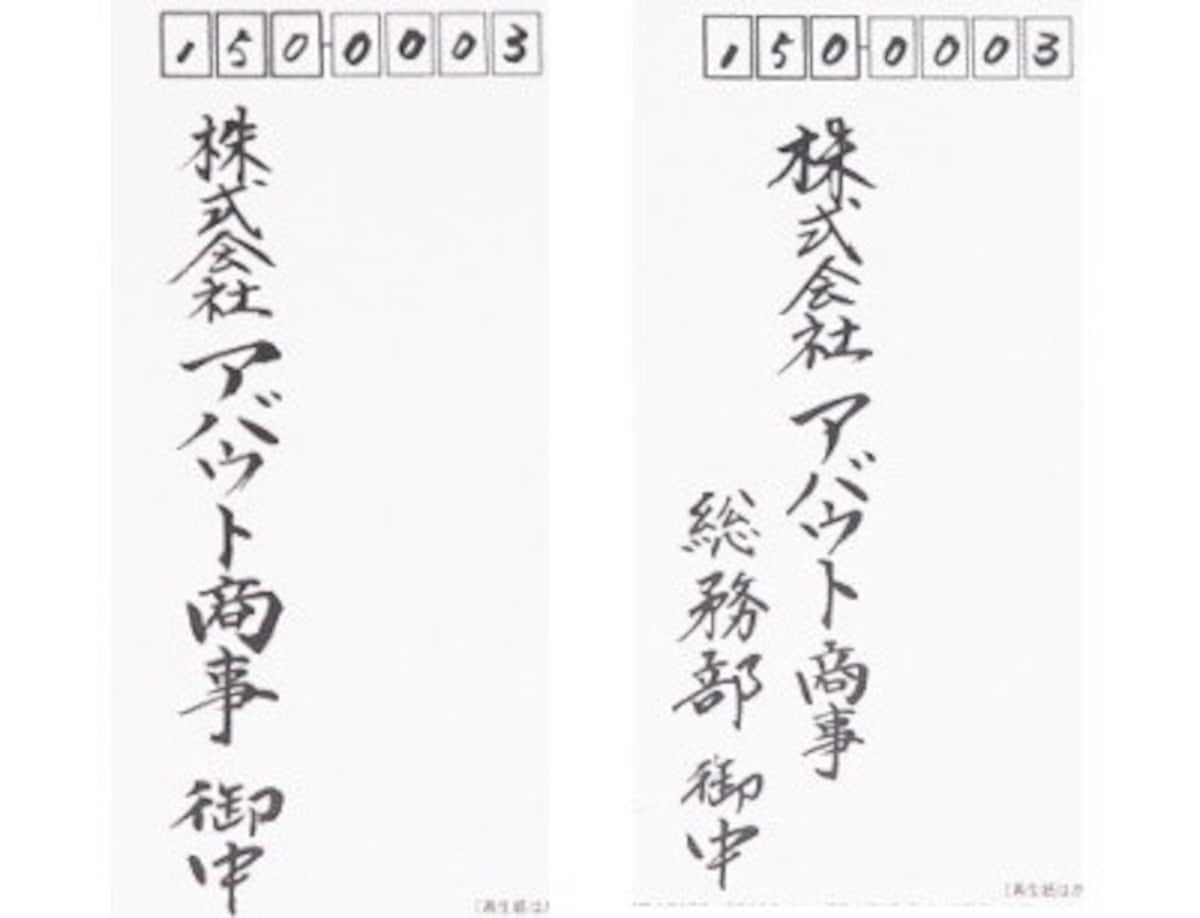 150-0003
株式会社 アバウト商事 御中
150-0003
株式会社 アバウト商事
総務部 御中